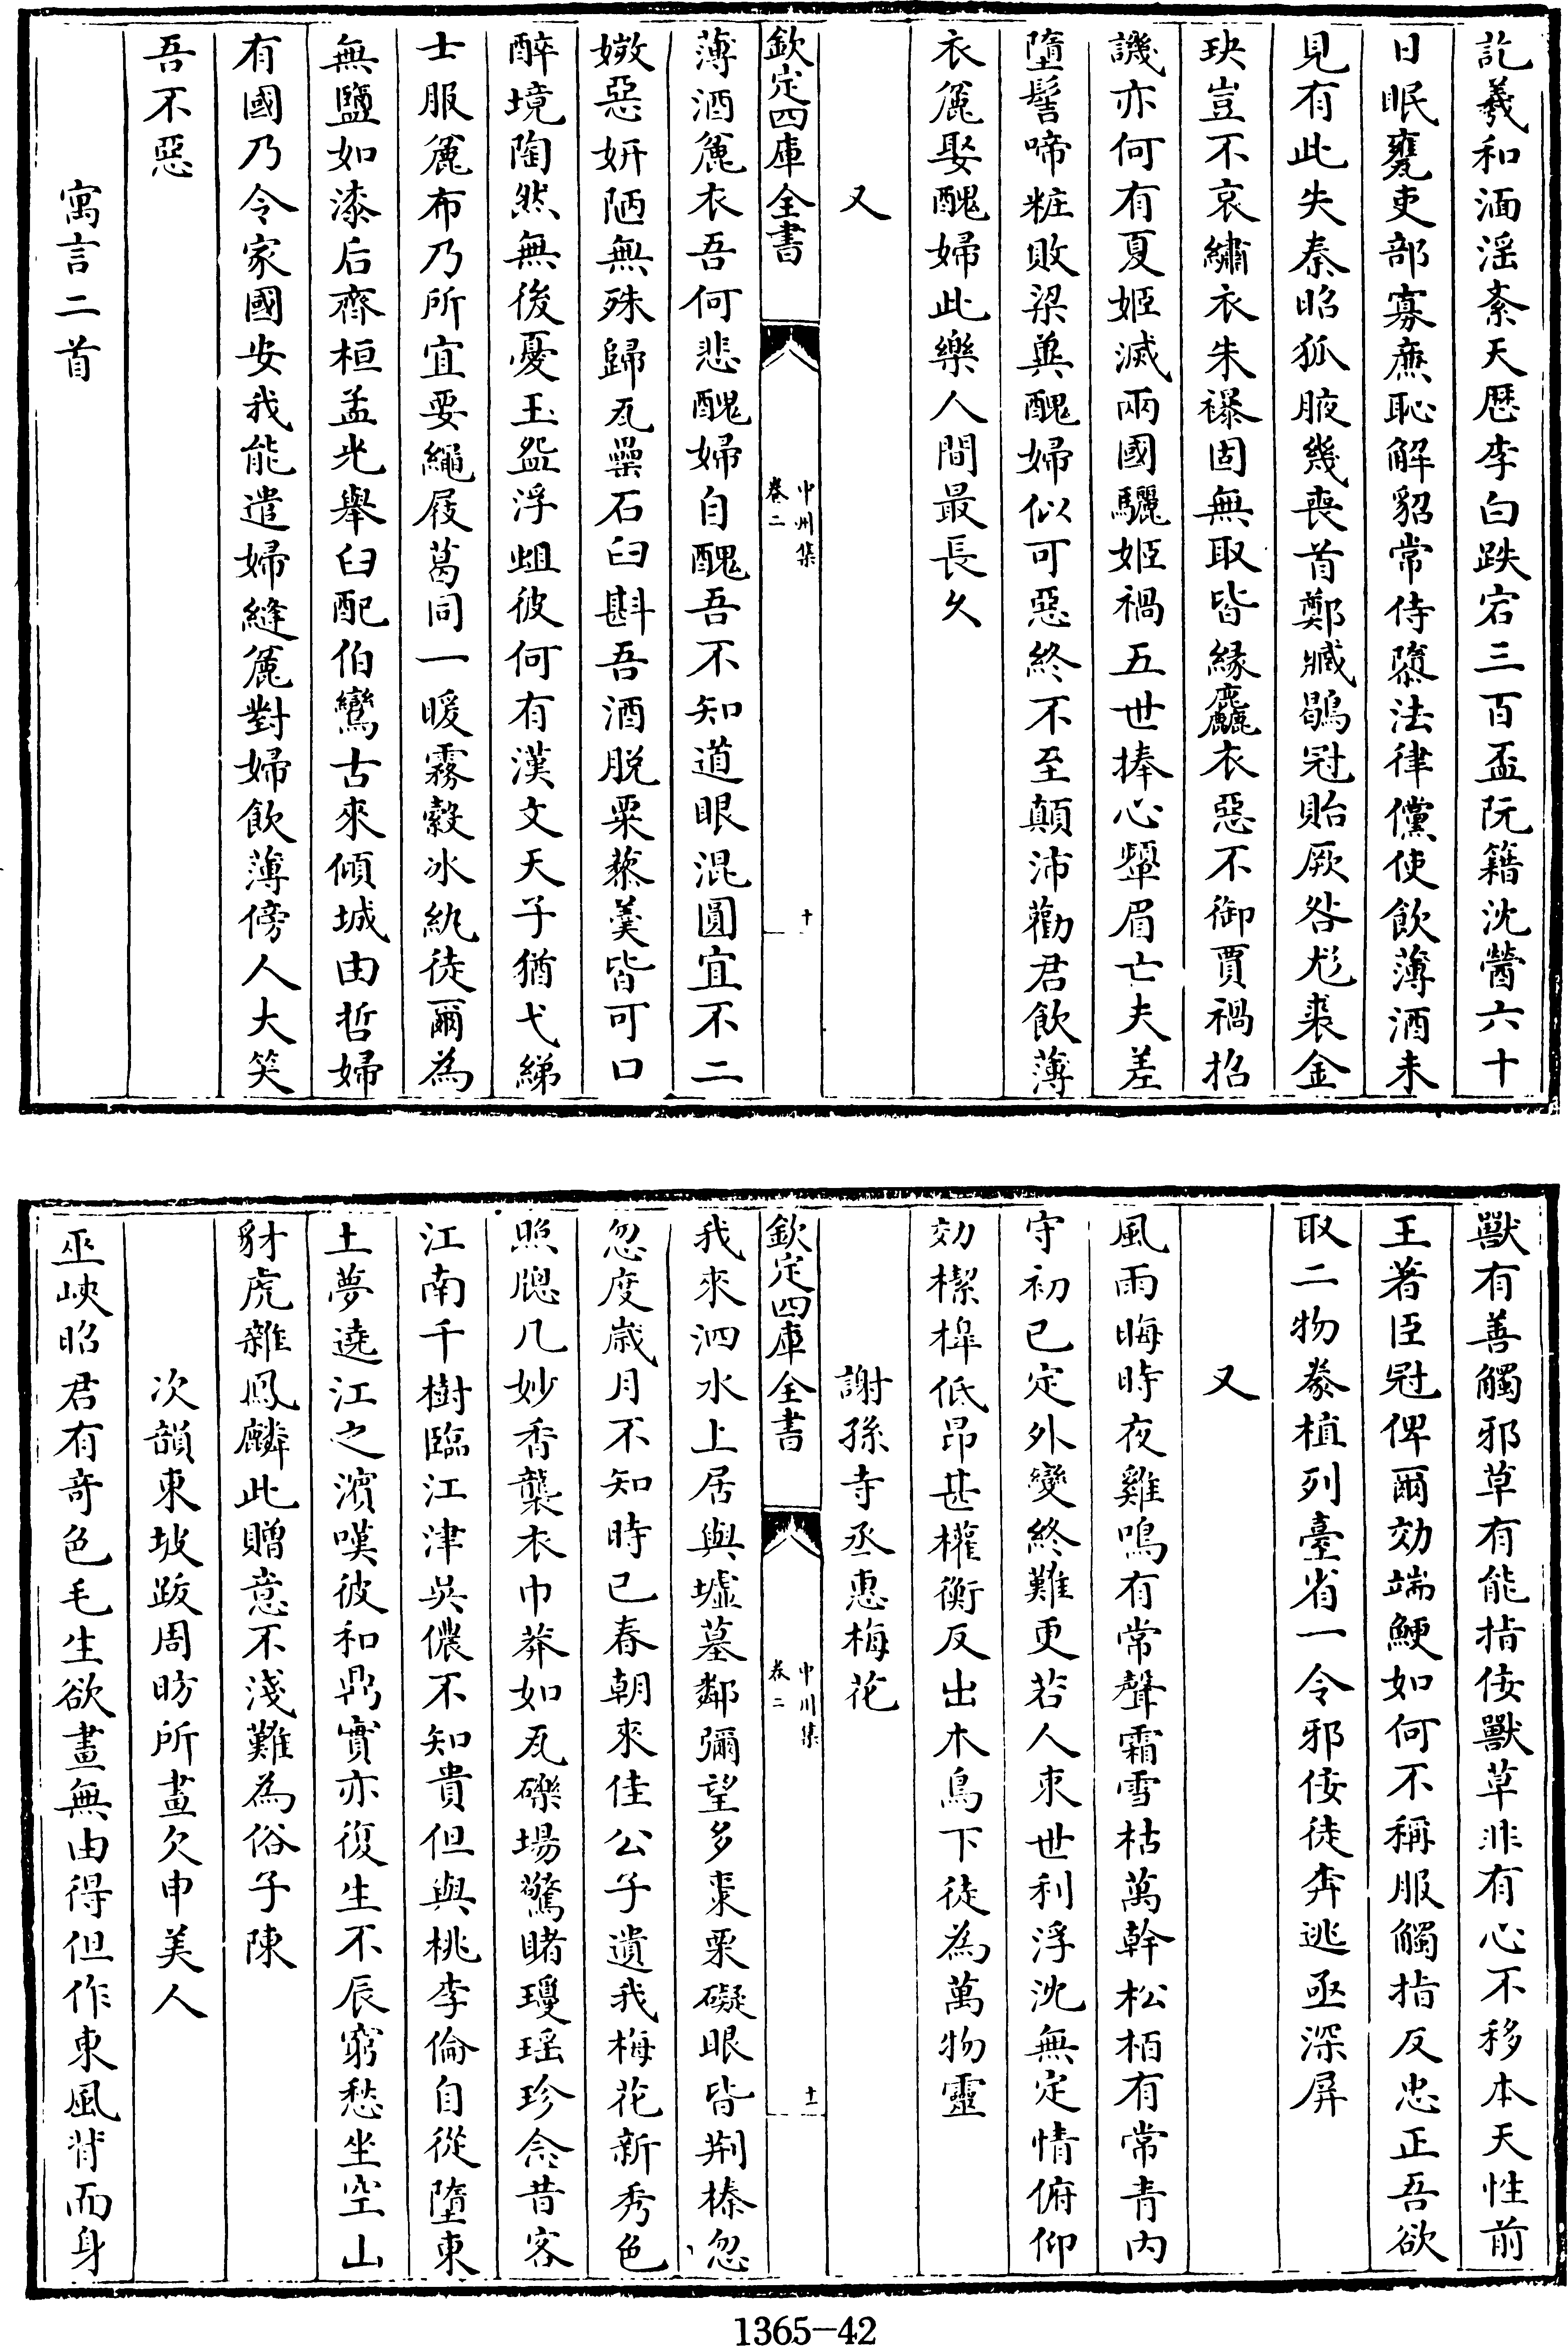 訖羲和湎滛紊天厯李白跌宕三百盃阮籍沈醟六十
日眠甕吏部寡廉恥解貂常侍隳法律儻使飲薄酒未
見有此失秦昭狐腋幾喪首鄭臧鷸冠貽厥咎尨裘金
玦豈不哀繡衣朱襮固無取皆縁麤衣惡不御賈禍招
譏亦何有夏姬滅兩國驪姬禍五世捧心顰眉亡夫差
墮髻啼粧敗梁冀醜婦似可惡終不至顛沛勸君飲薄
衣麄娶醜婦此樂人間最長久
又
欽定四庫全書
中州集
卷二
十
薄酒麄衣吾何悲醜婦自醜吾不知道眼混圓宜不二
媺惡妍陋無殊歸瓦罍石臼斟吾酒脱粟藜羹皆可口
醉境陶然無後憂玉盌浮蛆彼何有漢文天子猶弋綈
士服麄布乃所宜要繩屐葛同一暖霧縠冰紈徒爾為
無鹽如漆后齊桓孟光舉臼配伯鸞古來傾城由哲婦
有國乃令家國安我能遣婦縫麄對婦飲薄傍人大笑
吾不惡
寓言二首
獸有善觸邪草有能指佞獸草非有心不移本天性前
王著臣冠俾爾効端鯁如何不稱服觸指反忠正吾欲
取二物豢植列臺省一令邪佞徒奔逃亟深屏
又
風雨晦時夜雞鳴有常聲霜雪枯萬幹松栢有常青内
守初已定外變終難更若人束世利浮沈無定情俯仰
効㮮槔低昂甚權衡反出木鳥下徒為萬物靈
謝孫寺丞惠梅花
欽定四庫全書
中州集
卷二
十一
我來泗水上居與墟墓鄰彌望多棗栗礙眼皆荆榛忽
忽度歳月不知時已春朝來佳公子遺我梅花新秀色
照牕几妙香襲衣巾莽如瓦礫場驚睹瓊瑶珍念昔客
江南千樹臨江津吳儂不知貴但與桃李倫自從墮東
土夢遶江之濱嘆彼和鼎實亦復生不辰窮愁坐空山
豺虎雜鳳麟此贈意不淺難為俗子陳
次韻東坡跋周昉所畫欠申美人
巫峽昭君有竒色毛生欲畫無由得但作東風背面身
1365-42